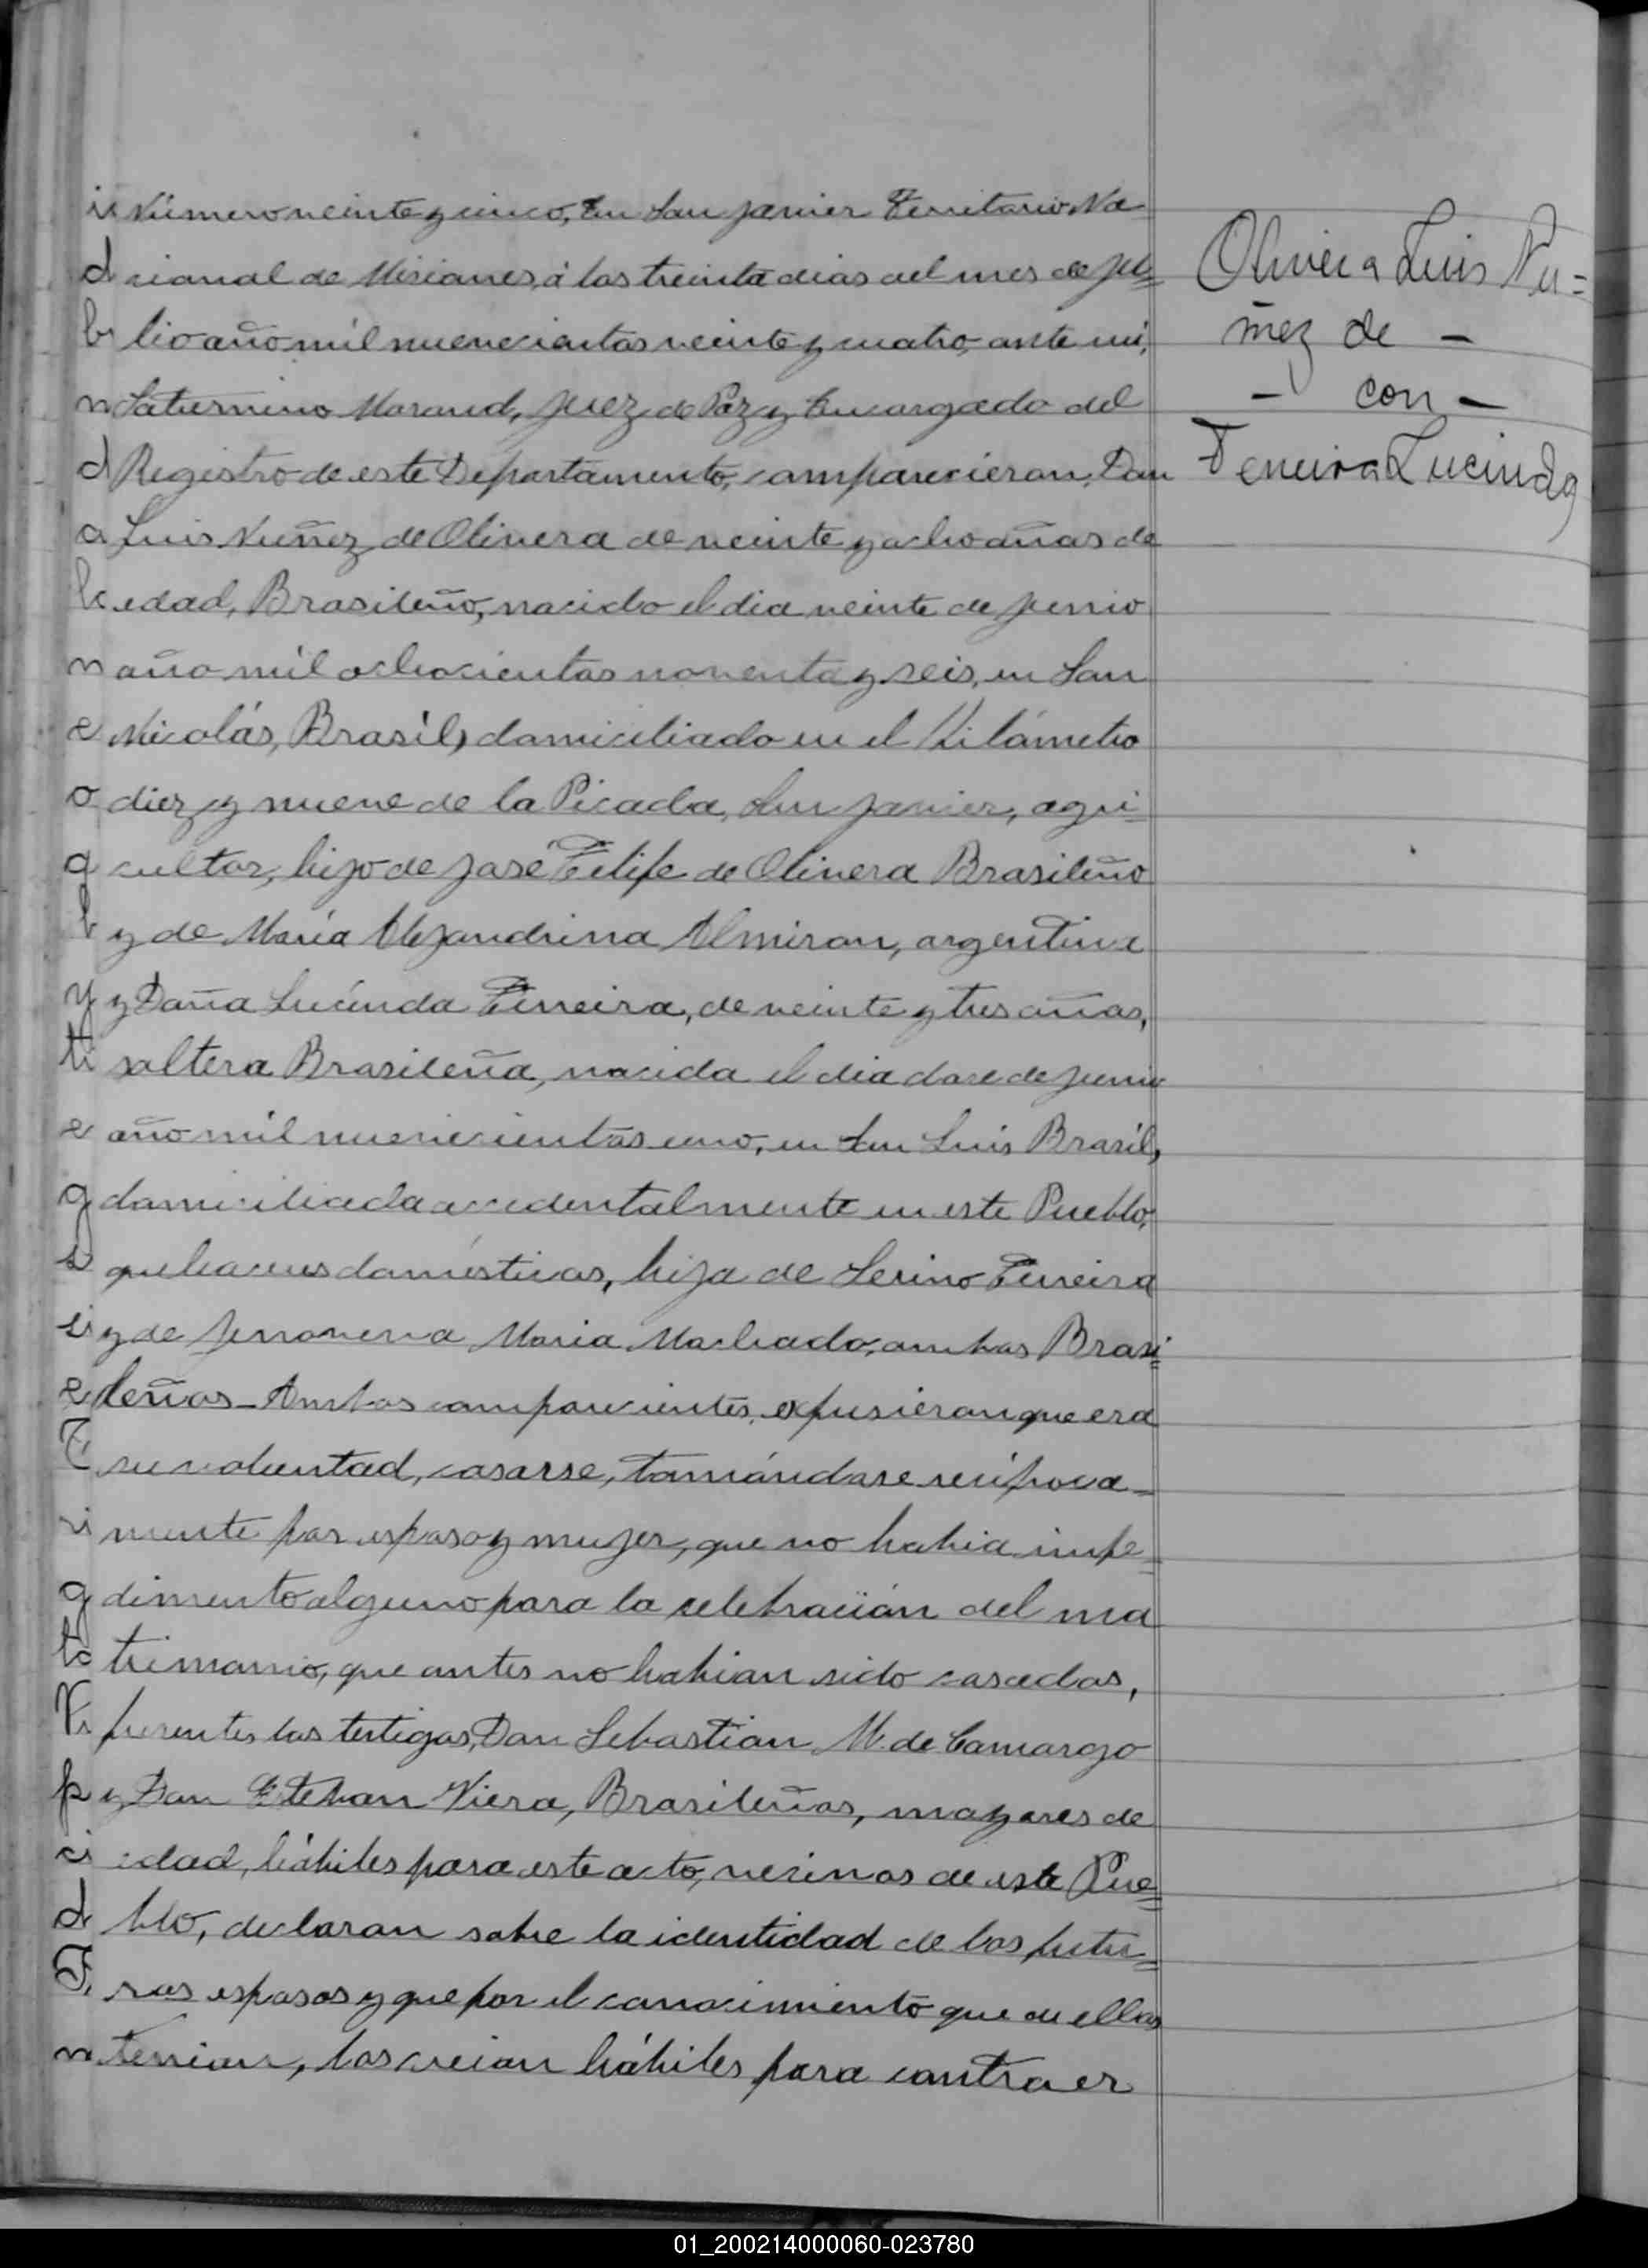 Número veinte y cinco, En San Javier Territorio Na
cional de Misiones, á los treinta dias del mes de Ju=
lio año mil nuevecientos veinte y cuatro, ante mí,
Saturnino Morand, Juez de Paz y Encargado del
Registro de este Departamento, comparecieron, Don
Luis Nuñez de Olivera de veinte y ocho años de
edad, Brasileño, nacido el dia veinte de Junio
año mil ochocientos noventa y seis, en San
Nicolás, Brasil, domiciliado en el Kilómetro
diez y nueve de la Picada, San Javier, agri=
cultor, hijo de José Felipe de Olivera Brasileño
y de María Alejandrina Almiron, argentina
y Doña Lucinda Ferreira, de veinte y tres años,
soltera Brasileña, nacida el dia doce de Junio
año mil nuevecientos uno, en San Luis Brasil,
domiciliada accidentalmente en este Pueblo,
quehaceres domésticos, hija de Serino Ferreira
y de Maria Machado, ambos Brasi=
leños - Ambos comparecientes, expusieron que era
su voluntad, casarse, tomándose recíproca-
mente por esposo y mujer, que no habia impe-
dimento alguno para la celebración del ma
trimonio, que antes no habian sido casados,
presentes los testigos, Don Sebastian M. de Camargo
y Don Esteban Viera, Brasileños, mayores de
edad, hábiles para este acto, vecinos de este Pue=
blo, declaran sobre la identidad de los futu=
ros esposos y que por el conocimiento que de ellos
tenian, los creian hábiles para contraer
Olivera Luis Nu=
ñez de -
- con -
Ferreira Lucinda
01_200214000060-023780